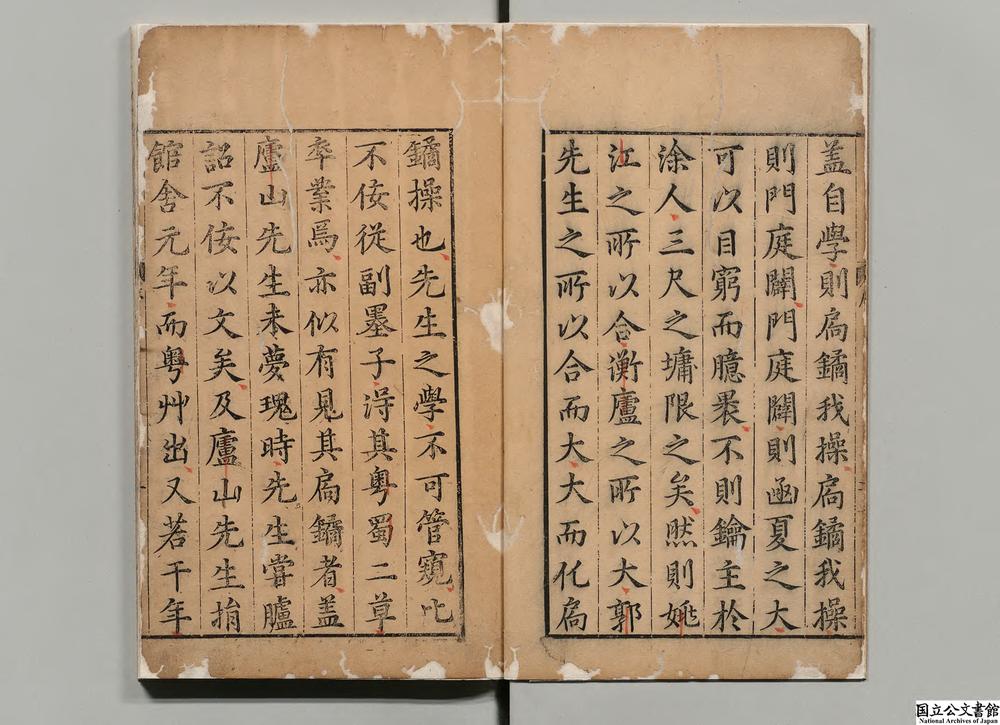 盖自學則扄鐍我操扄鐍我操
則門庭闢門庭闢則凾夏之大
可以目窮而臆裹不則鑰主於
涂人三尺之墉限之矣然則姚
江之所以合衡廬之所以大郭
先生之所以合而大大而化扄
鐍操也先生之學不可管窺比
不侫從副墨子淂其粤蜀二草
卒業焉亦似有見其扄鐍者盖
廬山先生未夢瑰時先生嘗臚
詔不侫以文矣及廬山先生捐
館舍元年而粤艸出又若干年
国立公文書館
National Archives of Japan